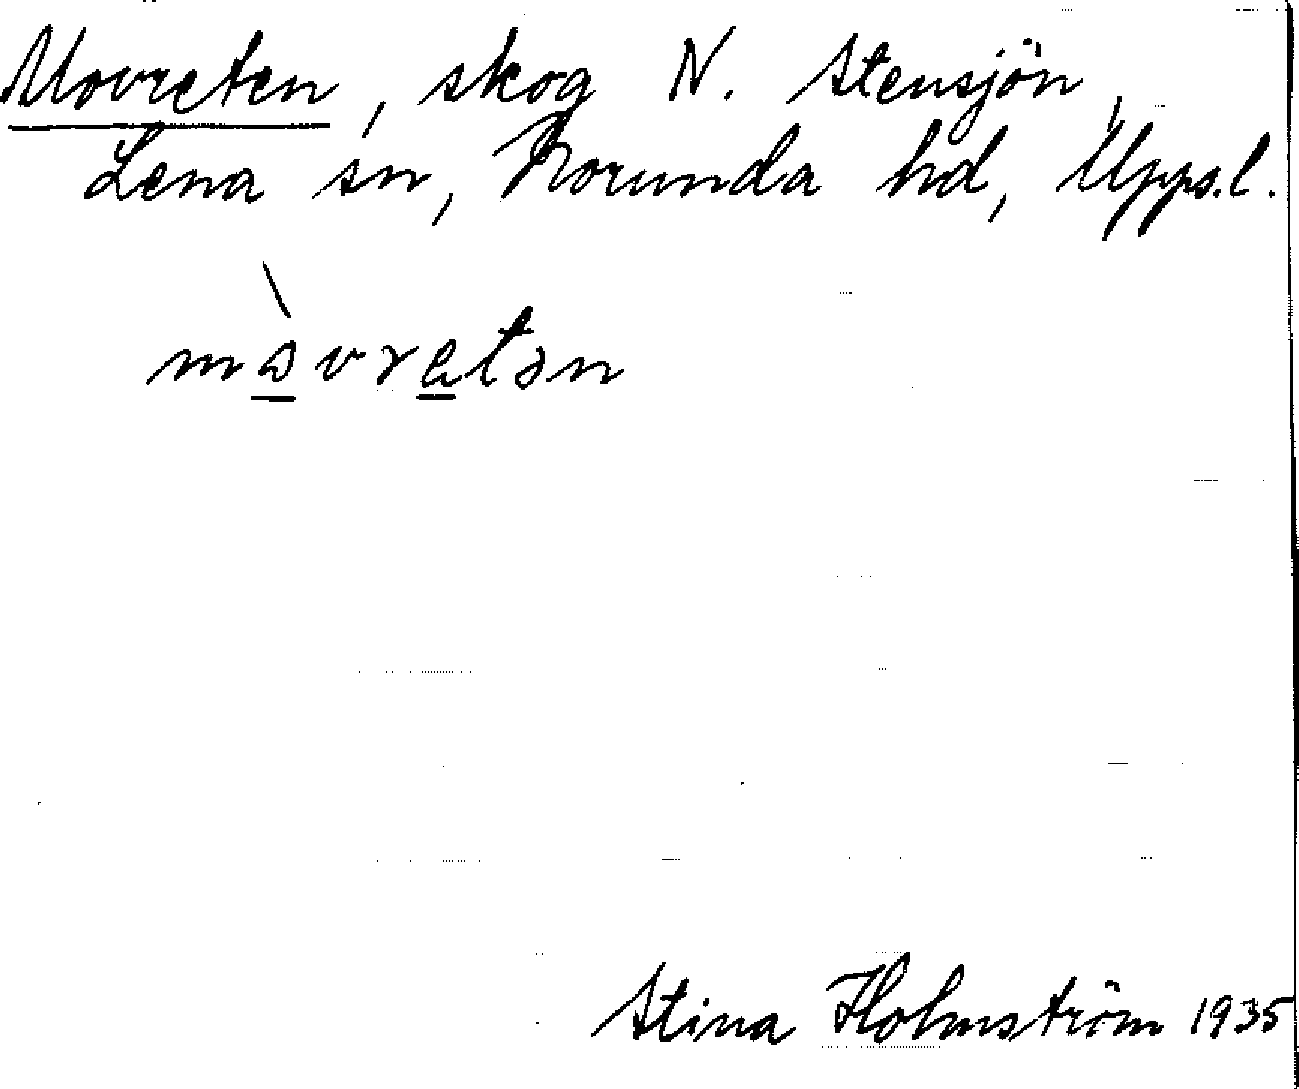 Movreten, skog N. Stensjön,
Lena sn, Norunda hd, Upps.l.
mòvretən
Stina Holmström 1935